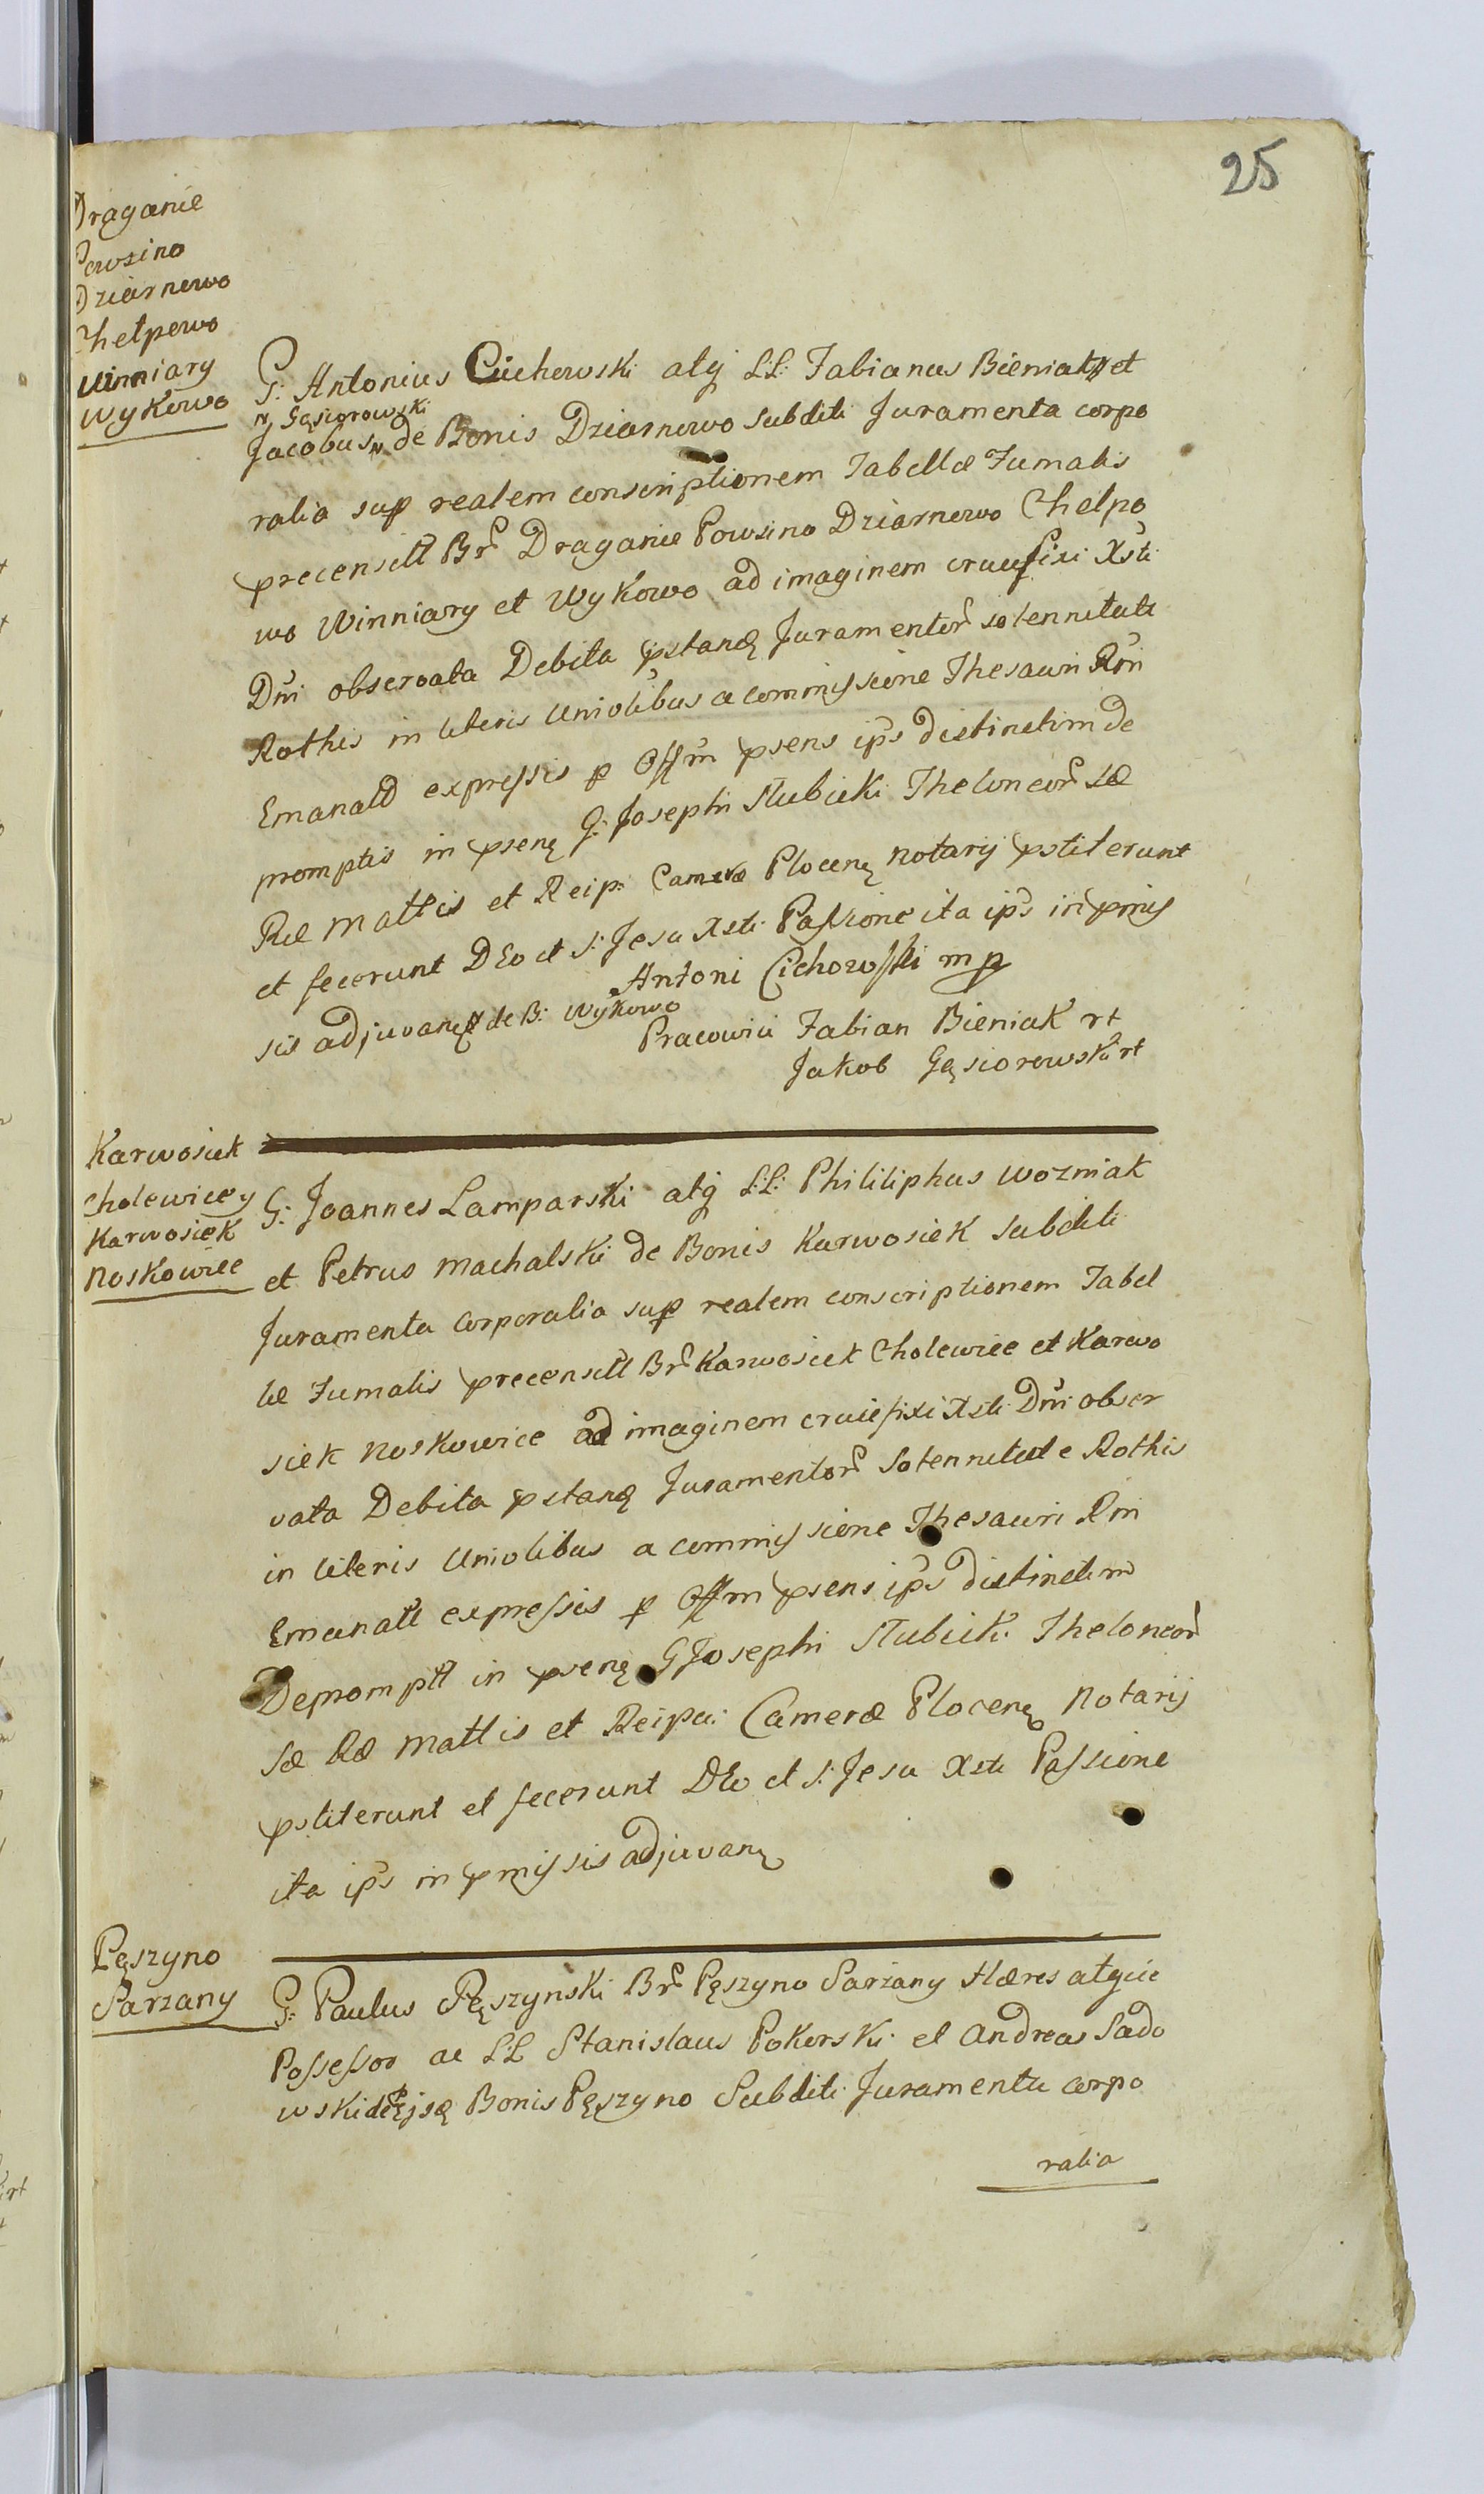 25
Draganie
Powsino
Dziarnowo
Chełpowo
Winniary
Wykowo
G: Antonius Cichowski atq̃ LL: Fabianus Bieniak et
N Gąsiorowski
Jacobus N de Bonis Dziarnowo Subditi Juramenta corpo
ralia sup realem conscriptionem Tabellæ Fumalis
precensitt Br̃ Draganie Powsino Dziarnowo Chelpo
wo Winniary et Wykowo ad imaginem crucifixi Xsti
Dñi observata Debita pstandę Juramentor̃ solennitate
Rothis in literis Uniolibus a commissione Thesauri Rñi
Emanatt expressis p Offm psens ip̃s distinctim de
promptis in psenę G: Josephi Słubicki Theloneor̃ Sæ
Ræ Mattis et Reip: Cameræ Plocenę Notarij pstiterunt
et fecerunt DEo et S: Jesu Xsti Passione ita ip̃s in pmis
sis adjuvanę de B: Wykowo
Antoni Cichowski mp
Pracowici Fabian Bieniak rt
Jakob Gąsiorowski rt
Karwosiek
Cholewice y
Karwosiek
Noskowice
G: Joannes Lamparski atq̃ LL: Phililiphus Wozniak
et Petrus Machalski de Bonis Karwosiek Subditi
Juramenta Corporalia sup realem conscriptionem Tabel
læ Fumalis precensitt Br̃ Karwosiek Cholewice et Karwo
siek Noskowice ad imaginem crucifixi Xsti Dñi obser
vata Debita pstandę Juramentor̃ Solennitate Rothis
in literis Uniolibus a commissione Thesauri Rñi
Emanatt expressis p Offm psens ip̃s distinctim
Depromptt in psenę G Josephi Słubicki Theloneor̃
Sæ Ræ Mattis et Reipu: Cameræ Plocenę Notarij
pstiterunt et fecerunt DEo et S: Jesu Xsti Passione
ita ip̃s in pmissis adjuvanę
Pęszyno
Sarzany
G: Paulus Pęszynski Br̃ Pęszyno Sarzany Hæres atq̃ue
Possessor ac LL Stanislaus Pokorski et Andreas Sado
wski de Ejsdę Bonis Pęszyno Subditi Juramenta corpo
ralia